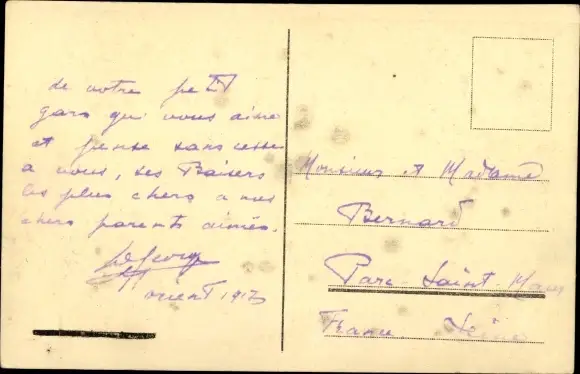 de votre petit
gars qui vous aime
et pense sans cesse
a vous, ses Baisers
les plus chers a mes
chers parents aimés.
Orient 1917
Monsieur et Madame
Bernard
Parc Saint Maur
France. Seine